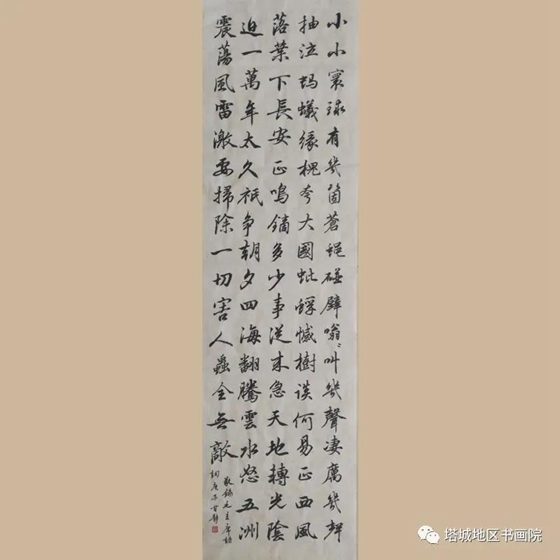 小小寰球有幾箇蒼蠅碰壁嗡〻叫幾聲凄厲幾聲
抽泣螞蟻緣槐夸大國蚍蜉憾樹談何易正西風
落葉下長安正鳴鏑多少事從來急天地轉光陰
迫一萬年太久祇争朝夕四海翻騰雲水怒五洲
震蕩風雷激要掃除一切害人蟲全无敵
敬錄毛主席詩
詞庚子
塔城地区书画院